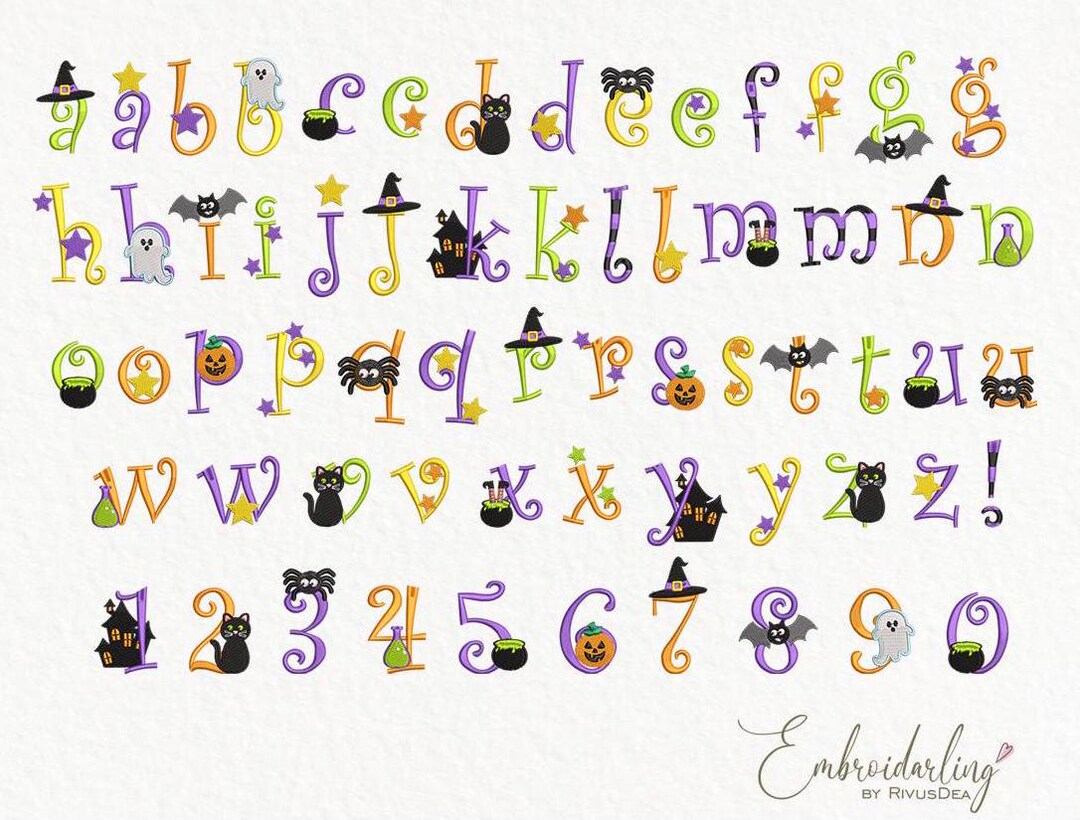 a a b b c c d d e e f f g g
h h i i j j k k l l m m n n
o o p p q q r r s s t t u u
w w v v x x y y z z !
1 2 3 4 5 6 7 8 9 0
Embroidarling
BY RIVUSDEA